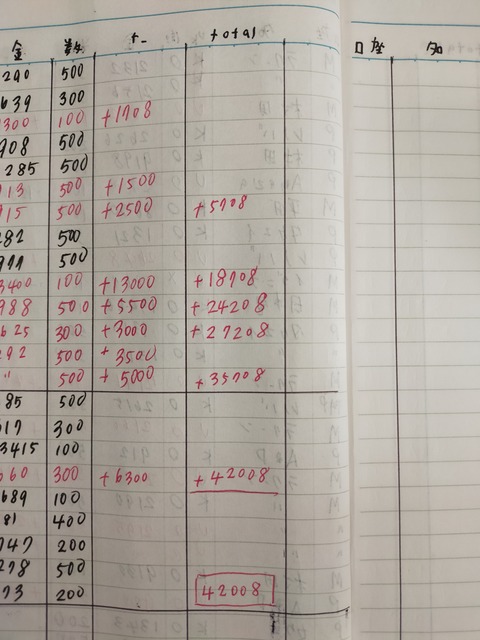 金 数 +- total 口座 知
290 500
639 300
300 100 +1708
908 500
285 500
913 500 +1500
915 500 +2500 +5708
282 500
500
3400 100 +13000 +18708
988 500 +5500 +24208
625 300 +3000 +27208
292 500 +3500
" 500 +5000 +35708
85 500
517 300
3415 100
660 300 +6300 +42008
689 100
81 400
747 200
278 500
73 200 42008